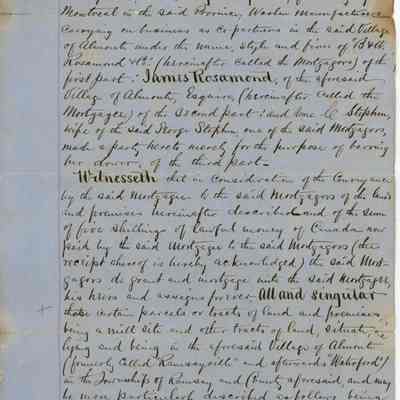 Montreal in the said Province, Woolen Manufacturers
Carrying on business as copartners in the said Village
of Almonte under the name, style and firm of "B & W.
Rosamond & Co." (hereinafter called the Mortgagors) of the
first part: James Rosamond, of the aforesaid
Village of Almonte, Esquire, (hereinafter called the
Mortgagee) of the second part: and Anne C Stephen,
wife of the said George Stephen, one of the said Mortgagors,
made a party hereto merely for the purpose of barring
her dower, of the third part—
Witnesseth that in Consideration of the Conveyance
by the said Mortgagee to the said Mortgagors of the lands
and premises hereinafter described and of the sum
of five shillings of lawful money of Canada now
paid by the said Mortgagee to the said Mortgagors (the
receipt whereof is hereby acknowledged) the said Mort-
gagors do grant and mortgage unto the said Mortgagee,
his heirs and assigns forever All and singular
those certain parcels or tracts of land and premises
being a mill site and other tracts of land, situate
lying and being in the aforesaid Village of Almonte
(formerly called Ramsayville" and afterwards "Waterford")
in the Township of Ramsay and County aforesaid, and may
be more particularly described as follows being